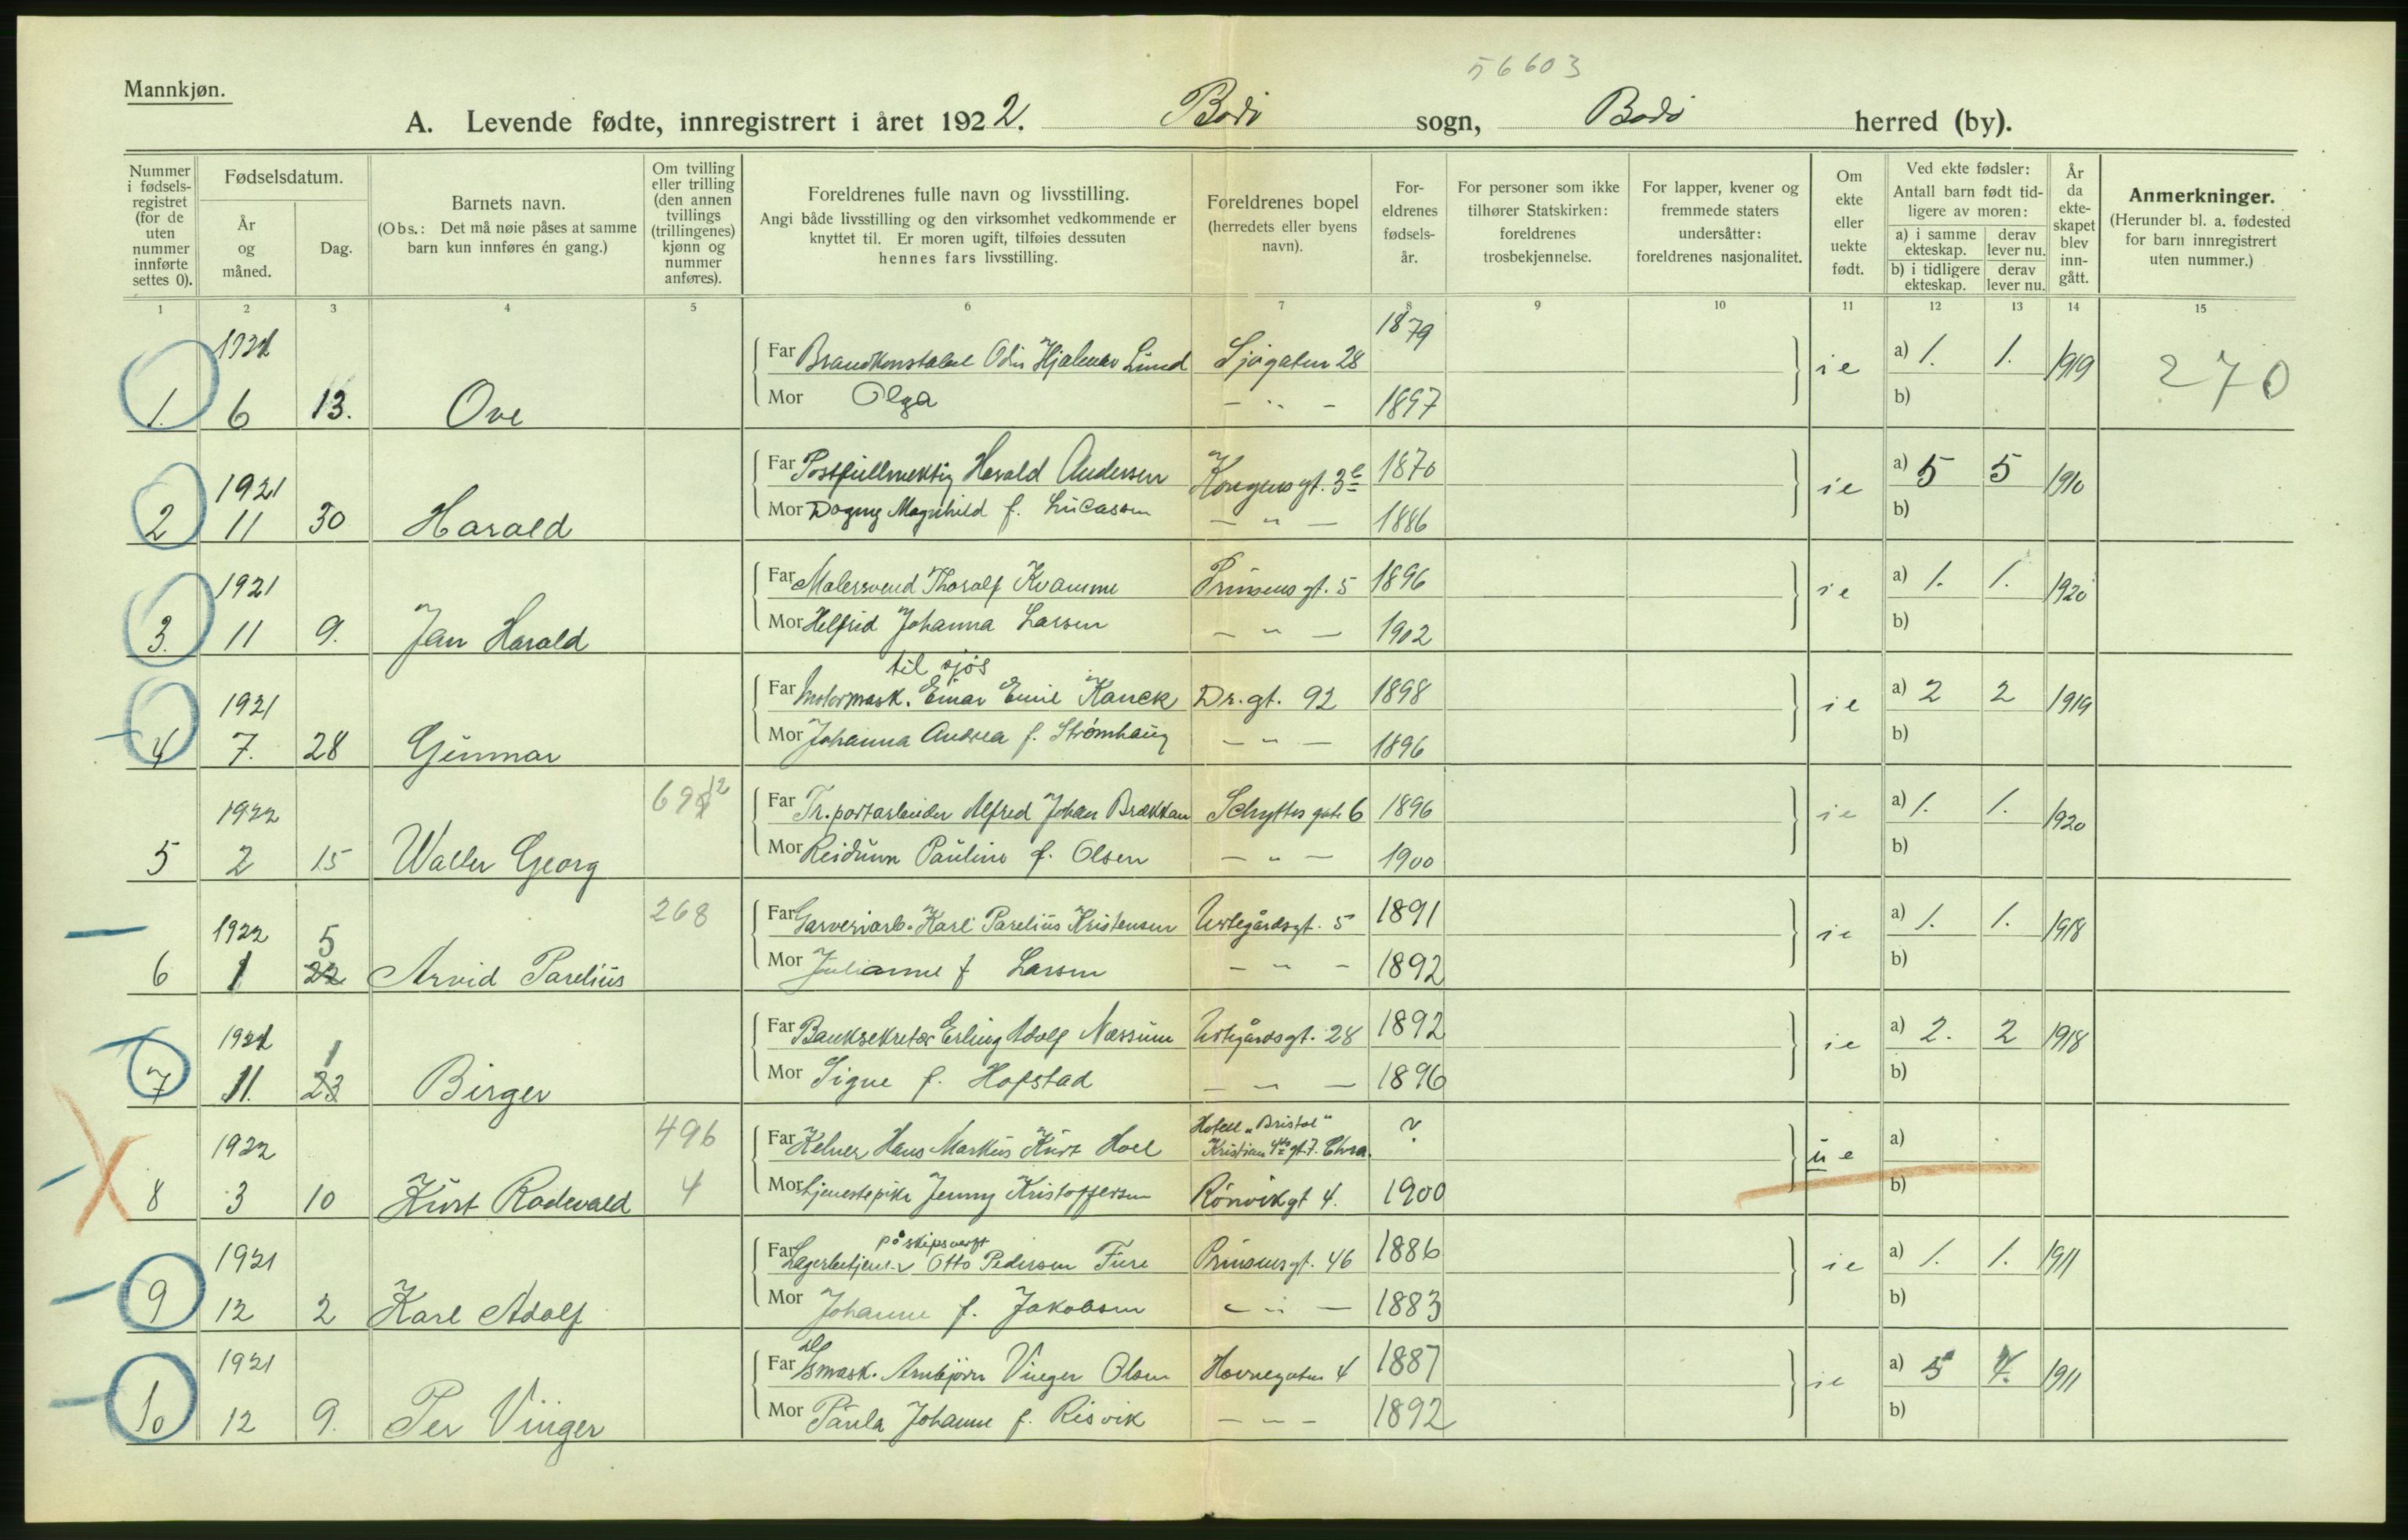 56603
Mannkjøn.
A. Levende fødte, innregistrert i året 1922. Bodø sogn, Bodø herred (by).
Nummer i fødsels-registret (for de uten nummer innførte settes 0).
Fødselsdatum.
År og måned.
Dag.
Barnets navn.
(Obs.: Det må nøie påses at samme barn kun innføres én gang.)
Om tvilling eller trilling (den annen tvillings (trillingenes) kjønn og nummer anføres).
Foreldrenes fulle navn og livsstilling.
Angi både livsstilling og den virksomhet vedkommende er knyttet til. Er moren ugift, tilføies dessuten hennes fars livsstilling.
Foreldrenes bopel (herredets eller byens navn).
For-eldrenes fødsels-år.
For personer som ikke tilhører Statskirken: foreldrenes trosbekjennelse.
For lapper, kvener og fremmede staters undersåtter: foreldrenes nasjonalitet.
Om ekte eller uekte født.
Ved ekte fødsler:
Antall barn født tid-ligere av moren:
a) i samme ekteskap. derav lever nu.
b) i tidligere ekteskap. derav lever nu.
År da ekte-skapet blev inn-gått.
Anmerkninger.
(Herunder bl. a. fødested for barn innregistrert uten nummer.)
1 2 3 4 5 6 7 8 9 10 11 12 13 14 15
1921 Far Brandkonstabel Odin Hjalmar Lund Sjøgaten 28 1879 ie a) 1. 1. 1919 270
1. 6 13. Ove Mor Olga — " — 1897 b)
1921 Far Postfullmektig Harald Andersen Kongensgt. 3b 1870 ie a) 5 5 1910
2 11 30 Harald Mor Dagny Magnhild f. Lucassen — " — 1886 b)
1921 Far Malersvend Thoralf Kvamme Prinsensgt. 5 1896 ie a) 1. 1. 1920
3. 11 9. Jan Harald Mor Helfrid Johanna Larsen — " — 1902 b)
til sjøs
1921 Far Motormask. Einar Emil Kanck Dr. gt. 92 1898 ie a) 2 2 1919
4 7. 28 Gunnar Mor Johanna Andrea f. Strømhaug — " — 1896 b)
1922 Far Tr.portarbeider Alfred Johan Brækkan 6 1896 ie a) 1. 1. 1920
5 2 15 Walter Georg Mor Reidunn Pauline f. Olsen — " — 1900 b)
268
1922 5 Far Garveriarb. Karl Parelius Kristensen Urtegårdsgt. 5 1891 ie a) 1. 1. 1918
6 1 22 Arvid Parelius Mor Julianne f Larsen — " — 1892 b)
1921 1 Far Banksekretær Erling Adolf Næssum Urtegårdsgt. 28 1892 ie a) 2. 2 1918
7 11. 23 Birger Mor Signe f. Hofstad — " — 1896 b)
496 Hotell „Bristol"
1922 Far Kelner Hans Markus Kurt Hoel Kristian 4des gt. 7. Chra. ? ue a)
8 3 10 Kurt Rodevald 4 Mor tjenestepike Jenny Kristoffersen Rønvikgt 4. 1900 b)
på skipsverft
1921 Far Lagerbetjent v Otto Pedersen Fure Prinsensgt. 46 1886 ie a) 1. 1. 1911
9 12 2 Karl Adolf Mor Johanne f. Jakobsen — " — 1883 b)
1921 Far Arnbjørn Vinger Olsen Havnegaten 4 1887 ie a) 5 4. 1911
10 12 9. Per Vinger Mor Paula Johanne f. Risvik — " — 1892 b)